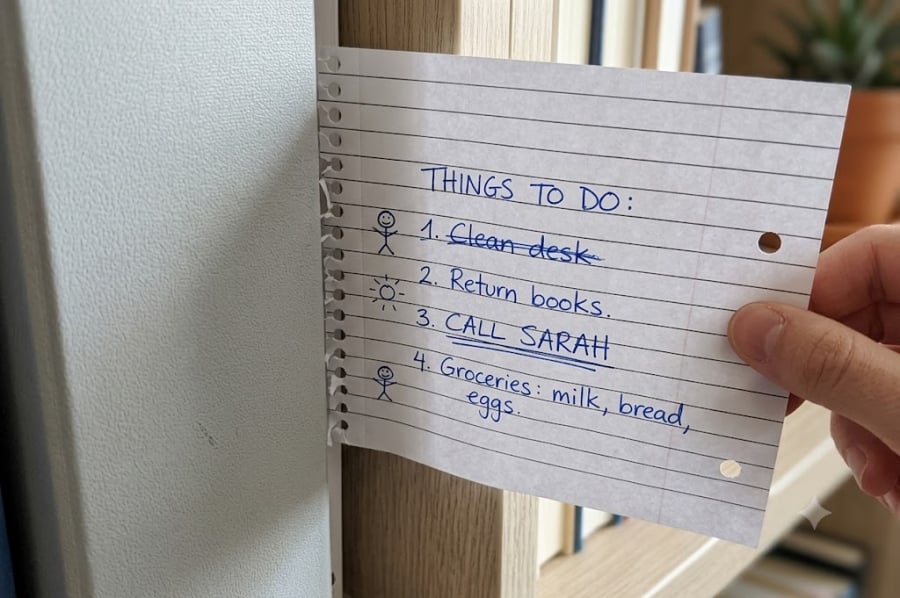 THINGS TO DO:
1. Clean desk
2. Return books.
3. CALL SARAH
4. Groceries: milk, bread,
eggs.